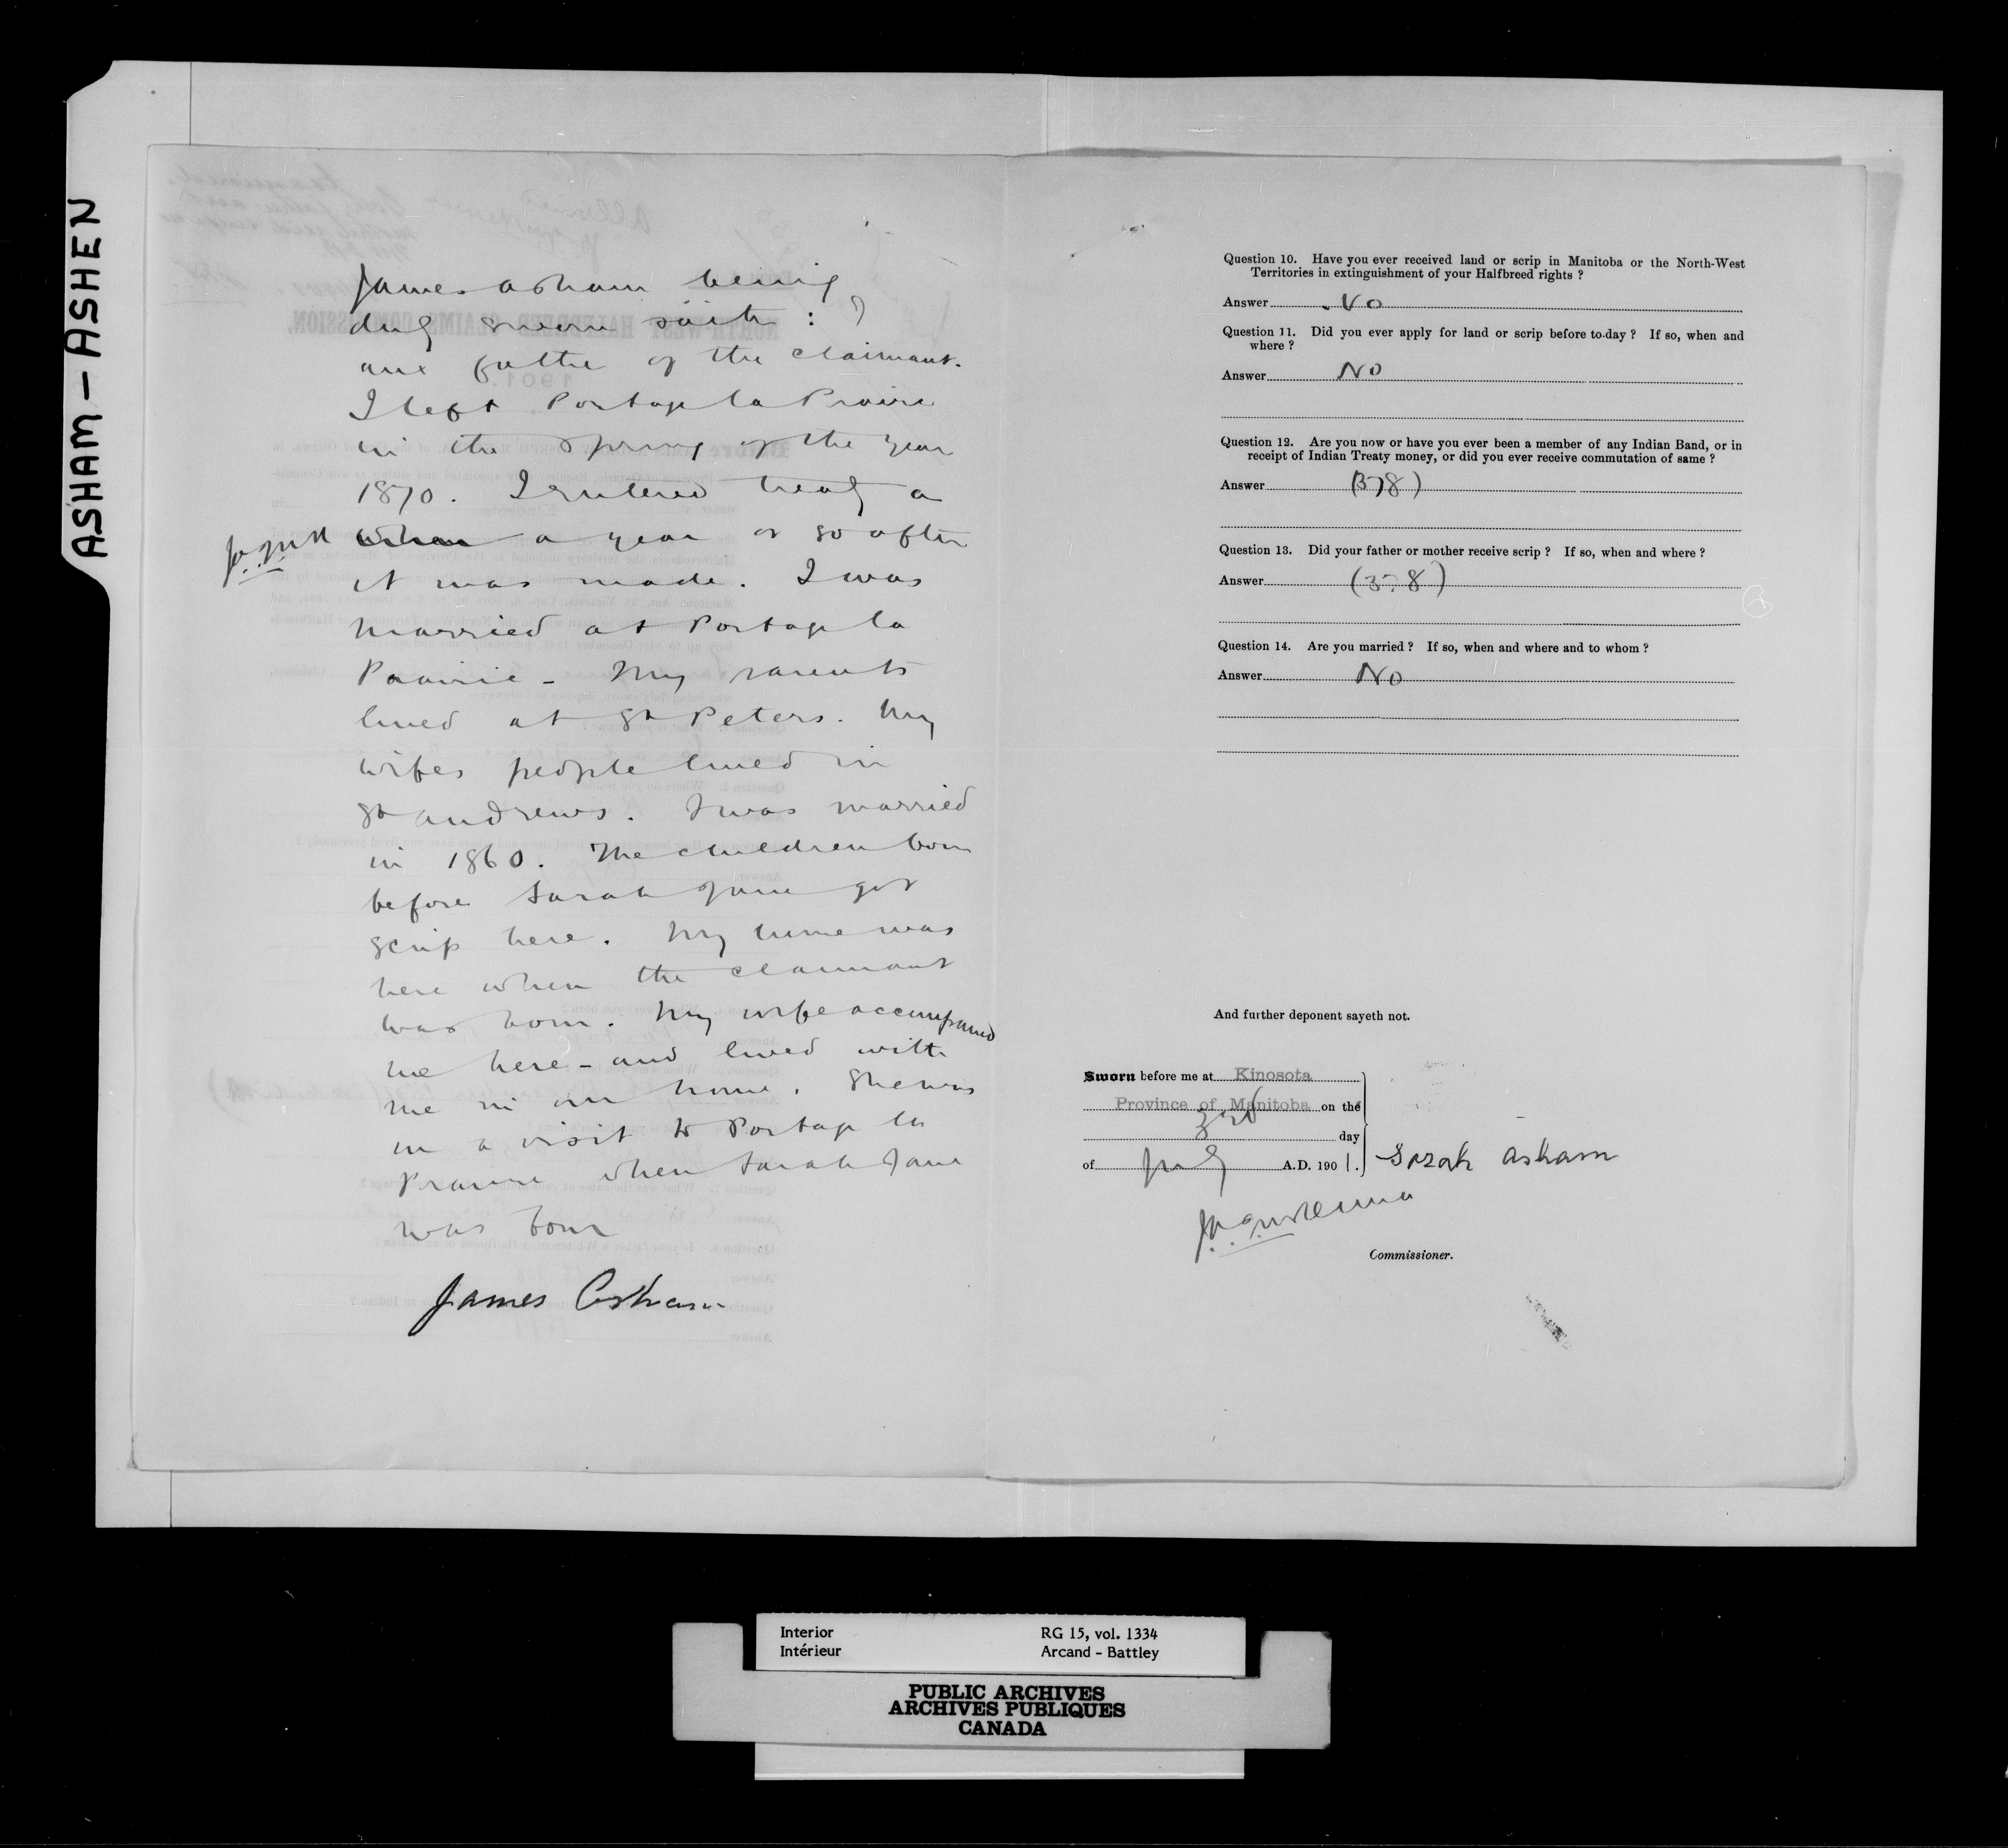 ASHAM - ASHEN
James Asham being
duly sworn saith : I
am father of the claimant.
I left Portage la Prairie
in the spring of the year
1870. I entered treaty a
when a year or so after
it was made. I was
married at Portage la
Prairie - My parents
lived at St Peters. My
wifes people lived in
St Andrews. I was married
in 1860. The children born
before Sarah Jane got
scrip here. My home was
here when the claimant
was born. My wife accompanied
me here - and lived with
me in our home. She was
on a visit to Portage la
Prairie when Sarah Jane
was born
James Asham
Question 10. Have you ever received land or scrip in Manitoba or the North-West
Territories in extinguishment of your Halfbreed rights ?
Answer No
Question 11. Did you ever apply for land or scrip before to-day ? If so, when and
where ?
Answer No
Question 12. Are you now or have you ever been a member of any Indian Band, or in
receipt of Indian Treaty money, or did you ever receive commutation of same ?
Answer (378)
Question 13. Did your father or mother receive scrip ? If so, when and where ?
Answer (378)
Question 14. Are you married ? If so, when and where and to whom ?
Answer No
And further deponent sayeth not.
Sworn before me at Kinosota
Province of Manitoba on the
3rd day
of July A.D. 1901. Sarah Asham
Commissioner.
Interior RG 15, vol. 1334
Intérieur Arcand - Battley
PUBLIC ARCHIVES
ARCHIVES PUBLIQUES
CANADA